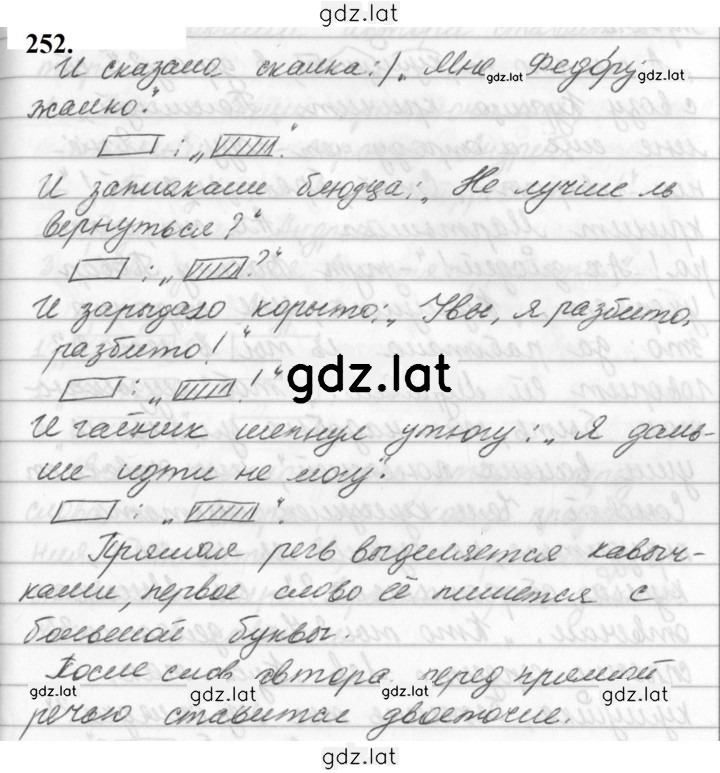 gdz.lat
252.
И сказала скалка: „Мне Федору
gdz.lat
gdz.lat
жалко".
: „ ".
И заплакали блюдца: „Не лучше ль
вернуться?"
: „ ?"
И зарыдало корыто: „Увы, я разбито,
разбито!"
: „ !"
gdz.lat
И чайник шепнул утюгу: „Я даль-
ше идти не могу".
: „ ".
Прямая речь выделяется кавыч-
ками, первое слово её пишется с
большой буквы.
После слов автора перед прямой
gdz.lat
gdz.lat
речью ставится двоеточие.
gdz.lat